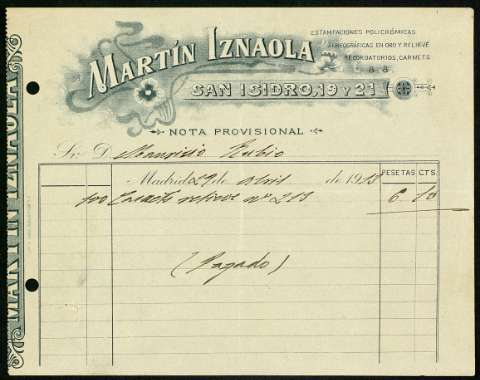 MARTÍN IZNAOLA
ESTAMPACIONES POLICRÓMICAS
RELIEVE
RECORDATORIOS, CARNETS
SAN ISIDRO, 19 Y 21
NOTA PROVISIONAL
Sr. D. Mauricio Rubio
Madrid 29 de Abril de 1913
PESETAS CTS.
100 relieve nº 213 6 10
(Pagado)
MARTIN IZNAOLA